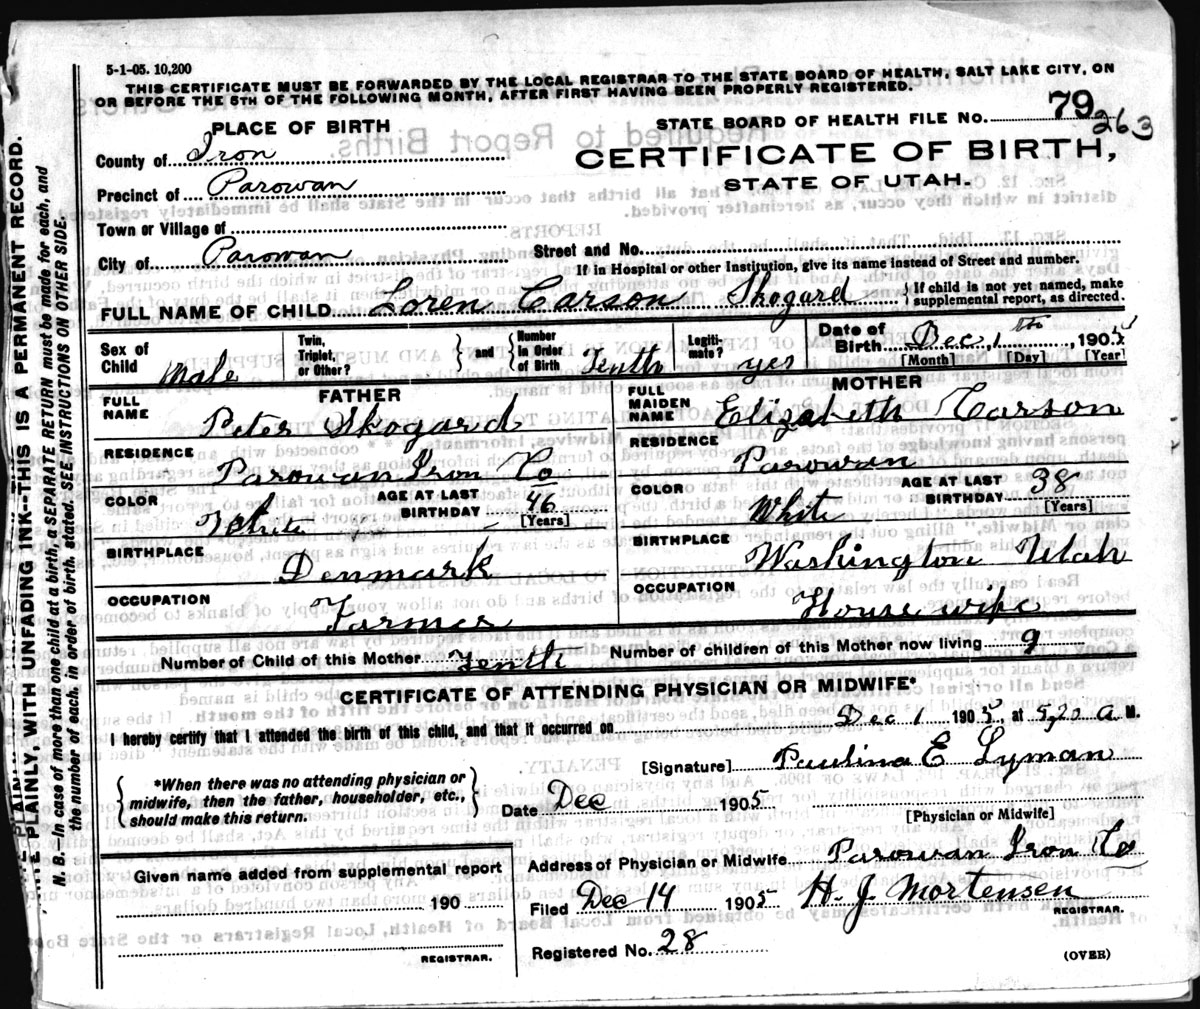 5-1-05. 10,200
THIS CERTIFICATE MUST BE FORWARDED BY THE LOCAL REGISTRAR TO THE STATE BOARD OF HEALTH, SALT LAKE CITY, ON
OR BEFORE THE 5TH OF THE FOLLOWING MONTH, AFTER FIRST HAVING BEEN PROPERLY REGISTERED.
PLACE OF BIRTH
STATE BOARD OF HEALTH FILE NO. 79 263
County of Iron
CERTIFICATE OF BIRTH,
Precinct of Parowan
STATE OF UTAH.
Town or Village of
City of Parowan
Street and No.
If in Hospital or other Institution, give its name instead of Street and number.
FULL NAME OF CHILD Loren Carson Skogard { If child is not yet named, make supplemental report, as directed.
Sex of Child Male
Twin, Triplet, or Other? } and { Number in Order of Birth Tenth
Legitimate? yes
Date of Birth Dec 1th 1905
[Month] [Day] [Year]
FATHER
FULL NAME Peter Skogard
RESIDENCE Parowan Iron Co
COLOR White
AGE AT LAST BIRTHDAY 46 [Years]
BIRTHPLACE Denmark
OCCUPATION Farmer
MOTHER
FULL MAIDEN NAME Elizabeth Carson
RESIDENCE Parowan
COLOR White
AGE AT LAST BIRTHDAY 38 [Years]
BIRTHPLACE Washington Utah
OCCUPATION House wife
Number of Child of this Mother Tenth
Number of children of this Mother now living 9
CERTIFICATE OF ATTENDING PHYSICIAN OR MIDWIFE*
I hereby certify that I attended the birth of this child, and that it occurred on Dec 1 1905, at 5,20 A M.
[Signature] Paulina E Lyman
*When there was no attending physician or
midwife, then the father, householder, etc.,
should make this return.
Date Dec 1905
[Physician or Midwife]
Given name added from supplemental report
190
REGISTRAR.
Address of Physician or Midwife Parowan Iron Co
Filed Dec 14 1905 H. J. Mortensen
REGISTRAR.
Registered No. 28
(OVER)
WRITE PLAINLY, WITH UNFADING INK--THIS IS A PERMANENT RECORD.
N. B.--In case of more than one child at a birth, a SEPARATE RETURN must be made for each, and
the number of each, in order of birth, stated. SEE INSTRUCTIONS ON OTHER SIDE.